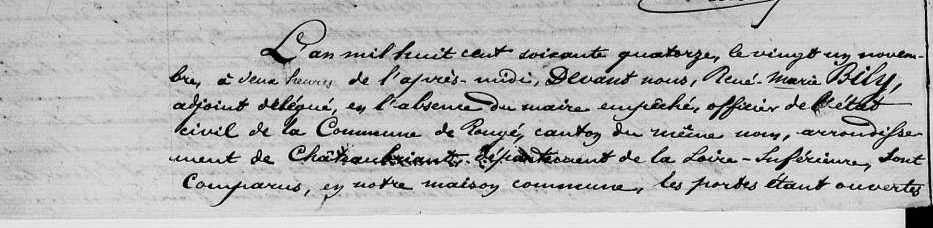 L'an mil huit cent soixante quatorze, le vingt un novem-
bre, à deux heures de l'après-midi, Devant nous, René-Marie Bily,
adjoint délégué, en l'absence du maire empêché, officier de l'état
civil de la Commune de Rougé, canton du même nom, arrondisse-
ment de Châteaubriant, département de la Loire-Inférieure, sont
Comparus, en notre maison commune, les portes étant ouvertes